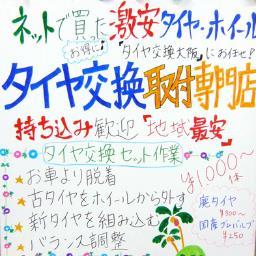 ネットで買った激安タイヤ・ホイール
お得に!
"タイヤ交換大阪"にお任せ!
タイヤ交換取付専門店
持ち込み歓迎「地域最安」
タイヤ交換セット作業
¥1,000〜/本
★お車より脱着
★古タイヤをホイールから外す
★新タイヤを組み込む
★バランス調整
廃タイヤ
¥300〜
国産ゴムバルブ
¥250